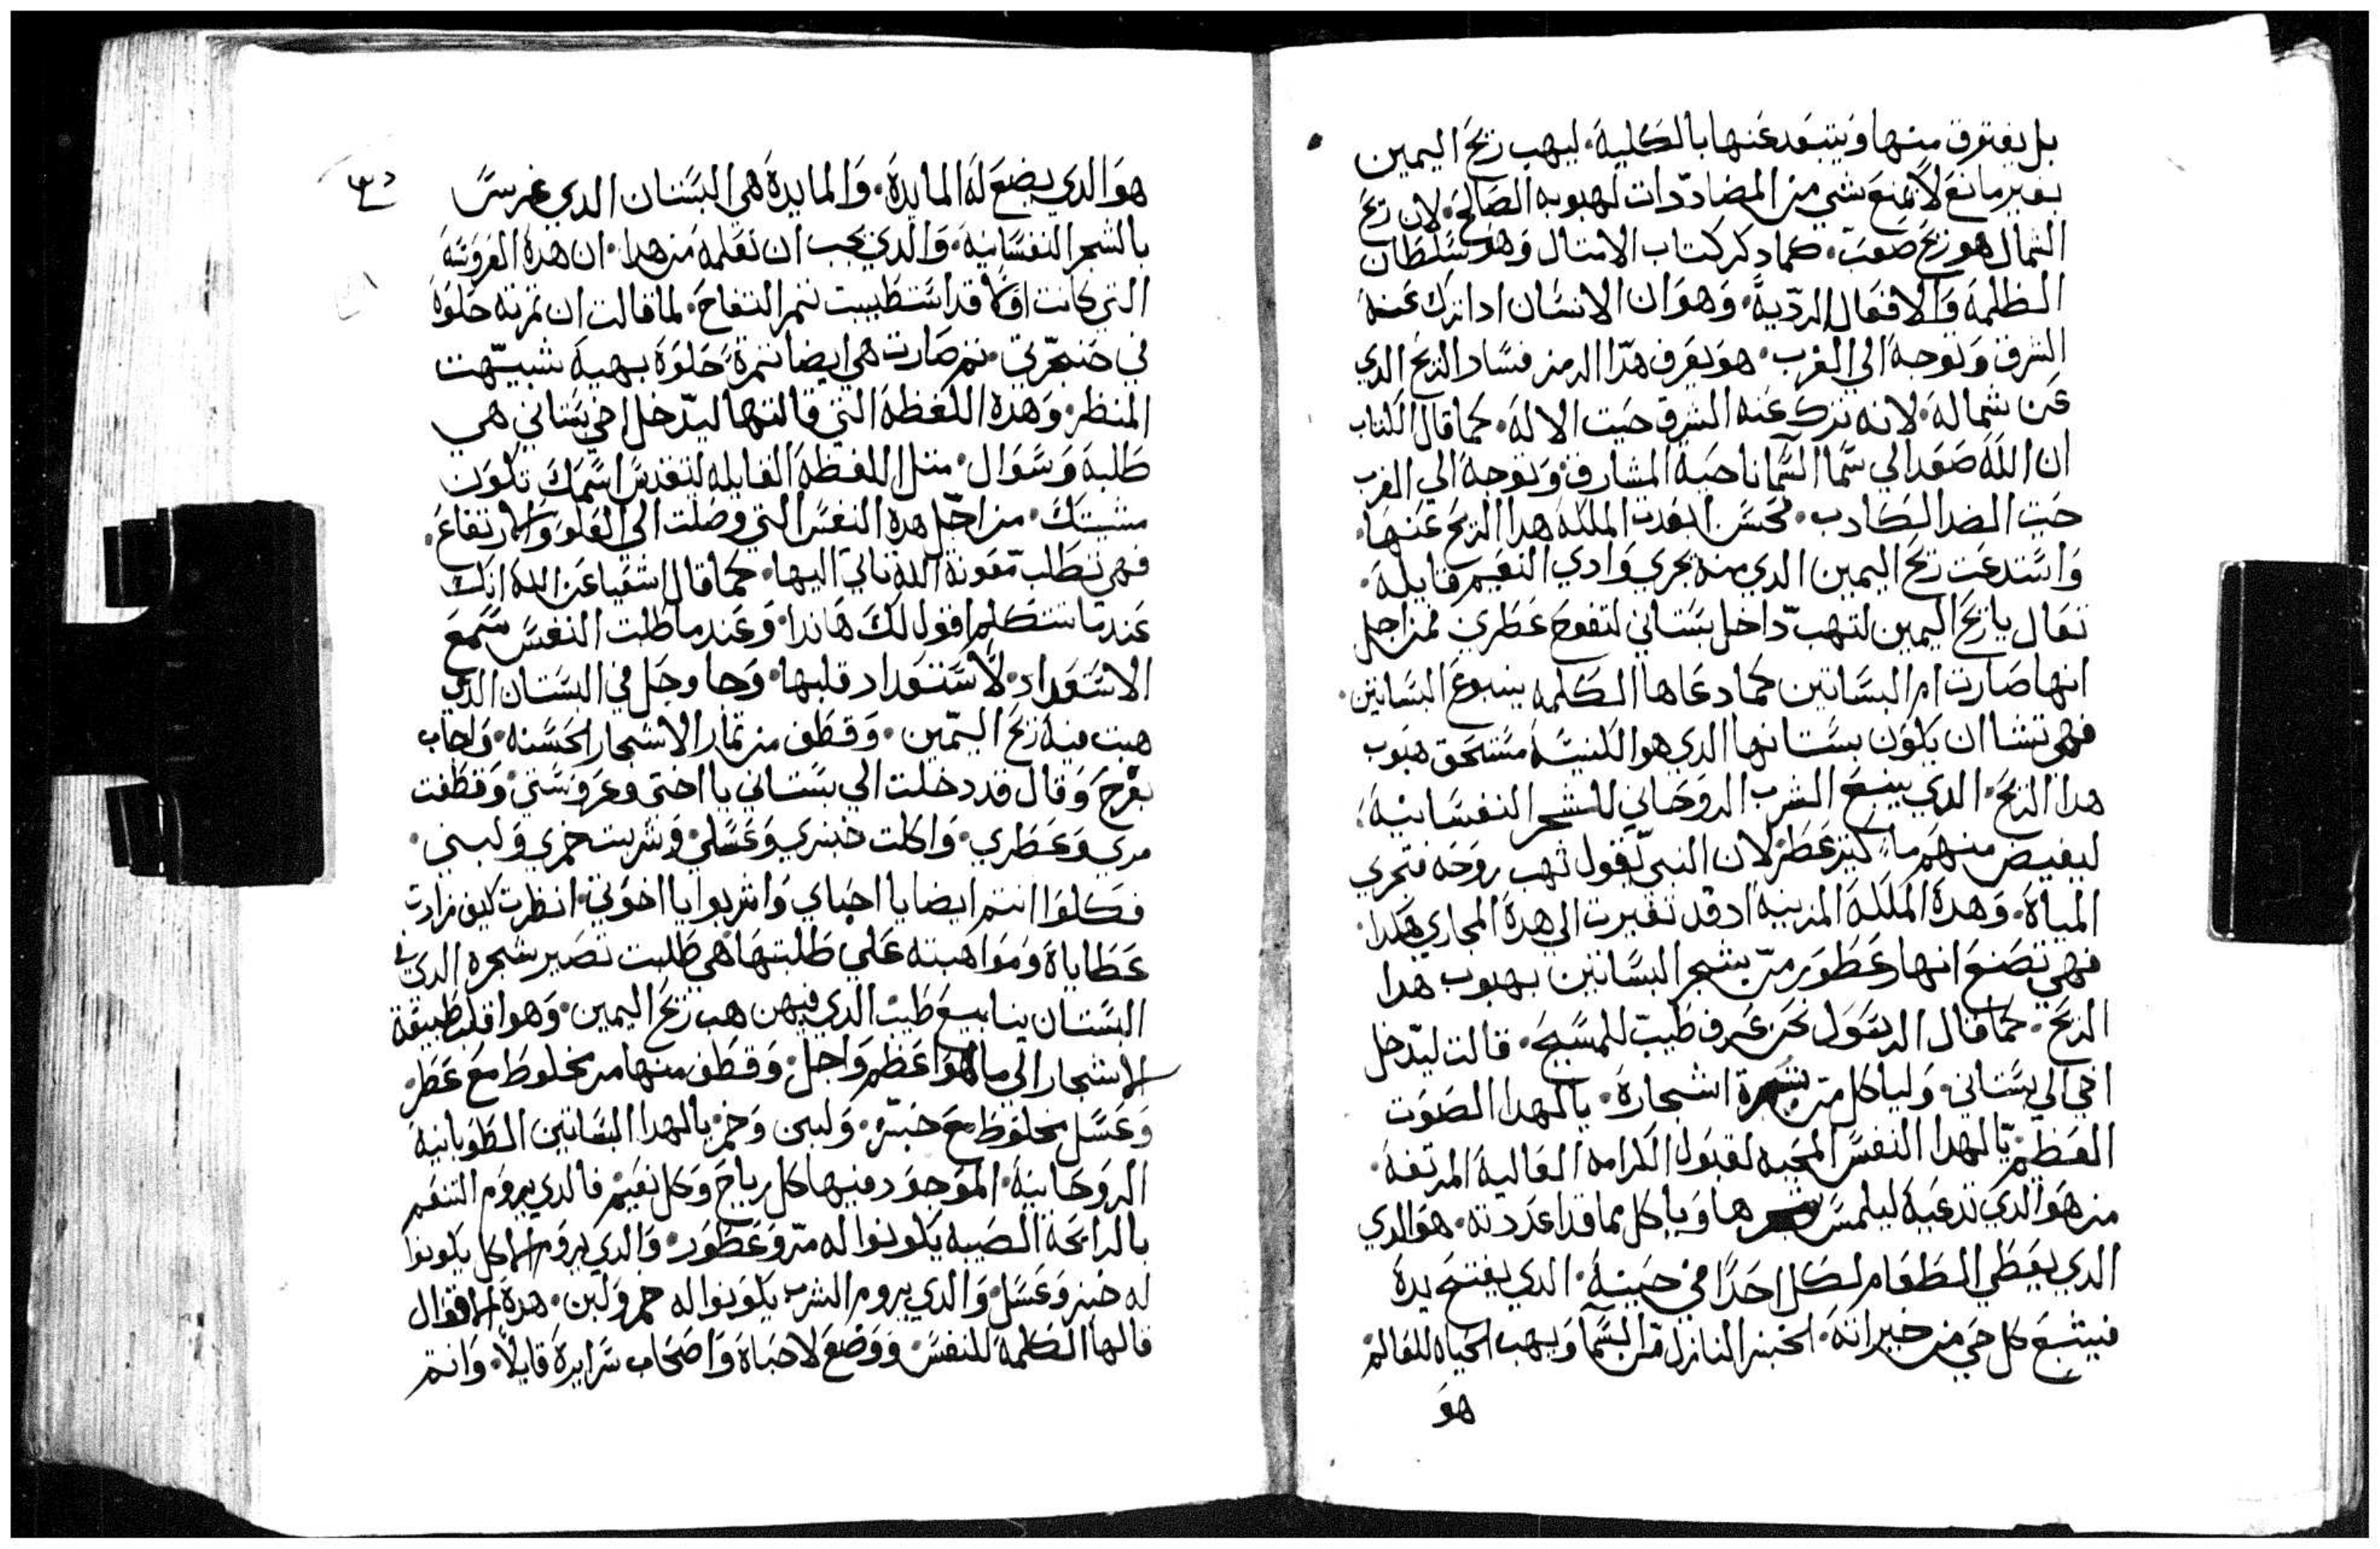 بل يفترق منها ويتبعد عنها بالكلية. ليهب ريح اليمين
بغير مانع لا يمنع شي من المضاددات لهبوبه الصالح. لان ريح
الشمال هو ريح صعب. كما دكر كتاب الامتال وهو سلطان
الظلمه والافعال الرديه. وهو ان الانسان ادا ترك عنه
الشرق وتوجه الي الغرب. هو يعرف هدا الرمز فساد الريح الدي
عن شماله. لانه ترك عنه الشرق حيت الاله. كما قال الكتاب
ان الله صعد الي سما السما ناحية المشارق. وتوجه الي الغرب
حيت الضد الكادب. فحسن ابعدت الملكه هدا الريح عنها.
واستدعت ريح اليمين الدي منه يجري وادي النعيم قايله.
تعال يا ريح اليمين لتهب داخل بستاني لتفوح عطري فمن اجل
انها صارت ام البساتين كما دعاها الكلمه ينبوع البساتين.
فهي تشا ان يكون بستانها الدي هو الكنيسه مستحق هبوب
هدا الريح. الدي ينبع الشرب الروحاني للشجر النفسانيه.
ليفيض منهم ما كتير عطر لان النبي يقول تهب روحه فتجري
المياه. وهده الملكه المزينه اد قد تغيرت الي هده المجاري هكدا.
فهي تصنع انهار عطور من شجر البساتين بهبوب هدا
الريح. كما قال الرسول نحن عرف طيب للمسيح. قالت ليدخل
اخي الي بستاني. ولياكل من ثمرة اشجاره. يا لهدا الصوت
العظيم. يا لهدا النفس المحبه لقبول الكرامه العاليه المرتفعه.
من هو الدي تدعيه ليلمس ثمرها وياكل مما قد اعددته. هو الدي
الدي يعطي الطعام لكل احدا في حينه. الدي يفتح يده
فيشبع كل حي من خيراته. الخبز النازل من السما ويهب الحياه للعالم
هو
هو الدي يضع له المايده. والمايده هي البستان الدي غرس
بالشجر النفسانيه. والدي يجب ان نعلمه من هدا. ان هده العروسه
التي كانت اولا قد استطيبت تمر التفاح. لما قالت ان تمرته حلوه
في حنجرتي. تم صارت هي ايضا تمرة حلوه بهية شبيهت
المنظر. وهده اللفظه التي قالتها ليدخل اخي بستاني هي
طلبه وسوال. متل اللفظه القايله ليتقدس اسمك تكون
مشيتك. من اجل هده النفس التي وصلت الي العلو والارتفاع.
فهي تطلب معونة الله تاتي اليها. كما قال اشعيا عن الله انك
عندما تتكلم اقول لك هاندا. وعندما طلبت النفس سمع
الاستعداد. لاستعداد قلبها. وجا وحل في البستان الدي
هبت فيه ريح اليمين. وقطف من تمار الاشجار الحسنه. واجاب
بفرح وقال قد دخلت الي بستاني يا اختي وعروستي. وقطفت
مري وعطري. واكلت خبزي وعسلي. وشربت خمري ولبني.
فكلوا انتم ايضا يا احباي واشربوا يا اخوتي. انظرت كيف زادت
عطاياه ومواهبته علي طلبتها هي طلبت تصير شجره الدي في
البستان ينابيع طيب الدي فيهن هب ريح اليمين. وهو اقلب طبيعة
الاشجار الي ما هو اعظم واجل. وقطف منها مر مخلوط مع عطر.
وعسل مخلوط مع خبزه. ولبن وخمر. يا لهدا البساتين الطوبانيه
الروحانيه. الموجود فيها كل رياح وكل نعيم. فالدي يروم التنعم
بالرايحه الطيبه يكونوا له مر وعطور. والدي يروم الاكل يكونوا
له خبز وعسل. والدي يروم الشرب يكونوا له خمر ولبن. هده الاقوال
قالها الكلمه للنفس. ووضع لاحباه واصحاب سرايره قايلا. وانتم